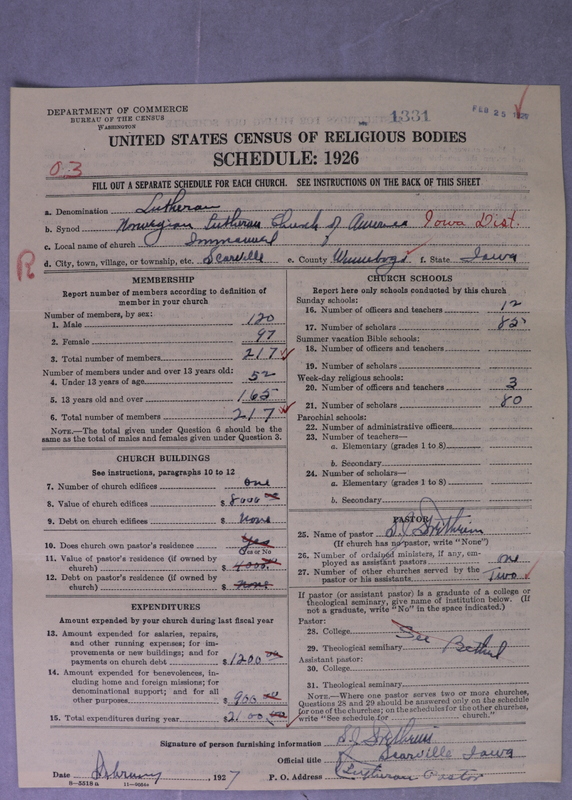 DEPARTMENT OF COMMERCE
BUREAU OF THE CENSUS
WASHINGTON
1331
FEB 25 1927
UNITED STATES CENSUS OF RELIGIOUS BODIES
SCHEDULE: 1926
03
FILL OUT A SEPARATE SCHEDULE FOR EACH CHURCH. SEE INSTRUCTIONS ON THE BACK OF THIS SHEET
a. Denomination Lutheran
b. Synod Norwegian Lutheran Church of America Iowa Dist.
c. Local name of church Immanuel
d. City, town, village, or township, etc. Scarville e. County Winnebago f. State Iowa
R
MEMBERSHIP
Report number of members according to definition of member in your church
Number of members, by sex:
1. Male 120
2. Female 97
3. Total number of members 217
Number of members under and over 13 years old:
4. Under 13 years of age 52
5. 13 years old and over 165
6. Total number of members 217
NOTE.—The total given under Question 6 should be the
same as the total of males and females given under Question 3.
CHURCH BUILDINGS
See instructions, paragraphs 10 to 12
7. Number of church edifices one
8. Value of church edifices $ 8000 00
9. Debt on church edifices $ none
10. Does church own pastor's residence Yes
Yes or No
11. Value of pastor's residence (if owned by
church) $ 4000
12. Debt on pastor's residence (if owned by
church) $ none
EXPENDITURES
Amount expended by your church during last fiscal year
13. Amount expended for salaries, repairs,
and other running expenses; for im-
provements or new buildings; and for
payments on church debt $ 1200 00
14. Amount expended for benevolences, in-
cluding home and foreign missions; for
denominational support; and for all
other purposes $ 900 00
15. Total expenditures during year $ 2100 00
CHURCH SCHOOLS
Report here only schools conducted by this church
Sunday schools:
16. Number of officers and teachers 12
17. Number of scholars 85
Summer vacation Bible schools:
18. Number of officers and teachers
19. Number of scholars
Week-day religious schools:
20. Number of officers and teachers 3
21. Number of scholars 80
Parochial schools:
22. Number of administrative officers
23. Number of teachers—
a. Elementary (grades 1 to 8)
b. Secondary
24. Number of scholars—
a. Elementary (grades 1 to 8)
b. Secondary
PASTOR
25. Name of pastor
(If church has no pastor, write "None")
26. Number of ordained ministers, if any, em-
ployed as assistant pastors one
27. Number of other churches served by the
pastor or his assistants Two
If pastor (or assistant pastor) is a graduate of a college or
theological seminary, give name of institution below. (If
not a graduate, write "No" in the space indicated.)
Pastor:
28. College See
29. Theological seminary Bethel
Assistant pastor:
30. College
31. Theological seminary
NOTE.—Where one pastor serves two or more churches,
Questions 28 and 29 should be answered only on the schedule
for one of the churches; on the schedules for the other churches,
write "See schedule for church."
Signature of person furnishing information
Official title Scarville Iowa
Date February, 1927 P. O. Address Lutheran Pastor
8—5518a